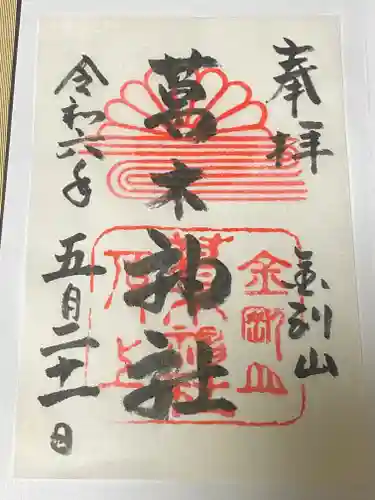 奉拝
金剛山
葛木神社
令和六年
五月二十一日
金剛山
葛木神社